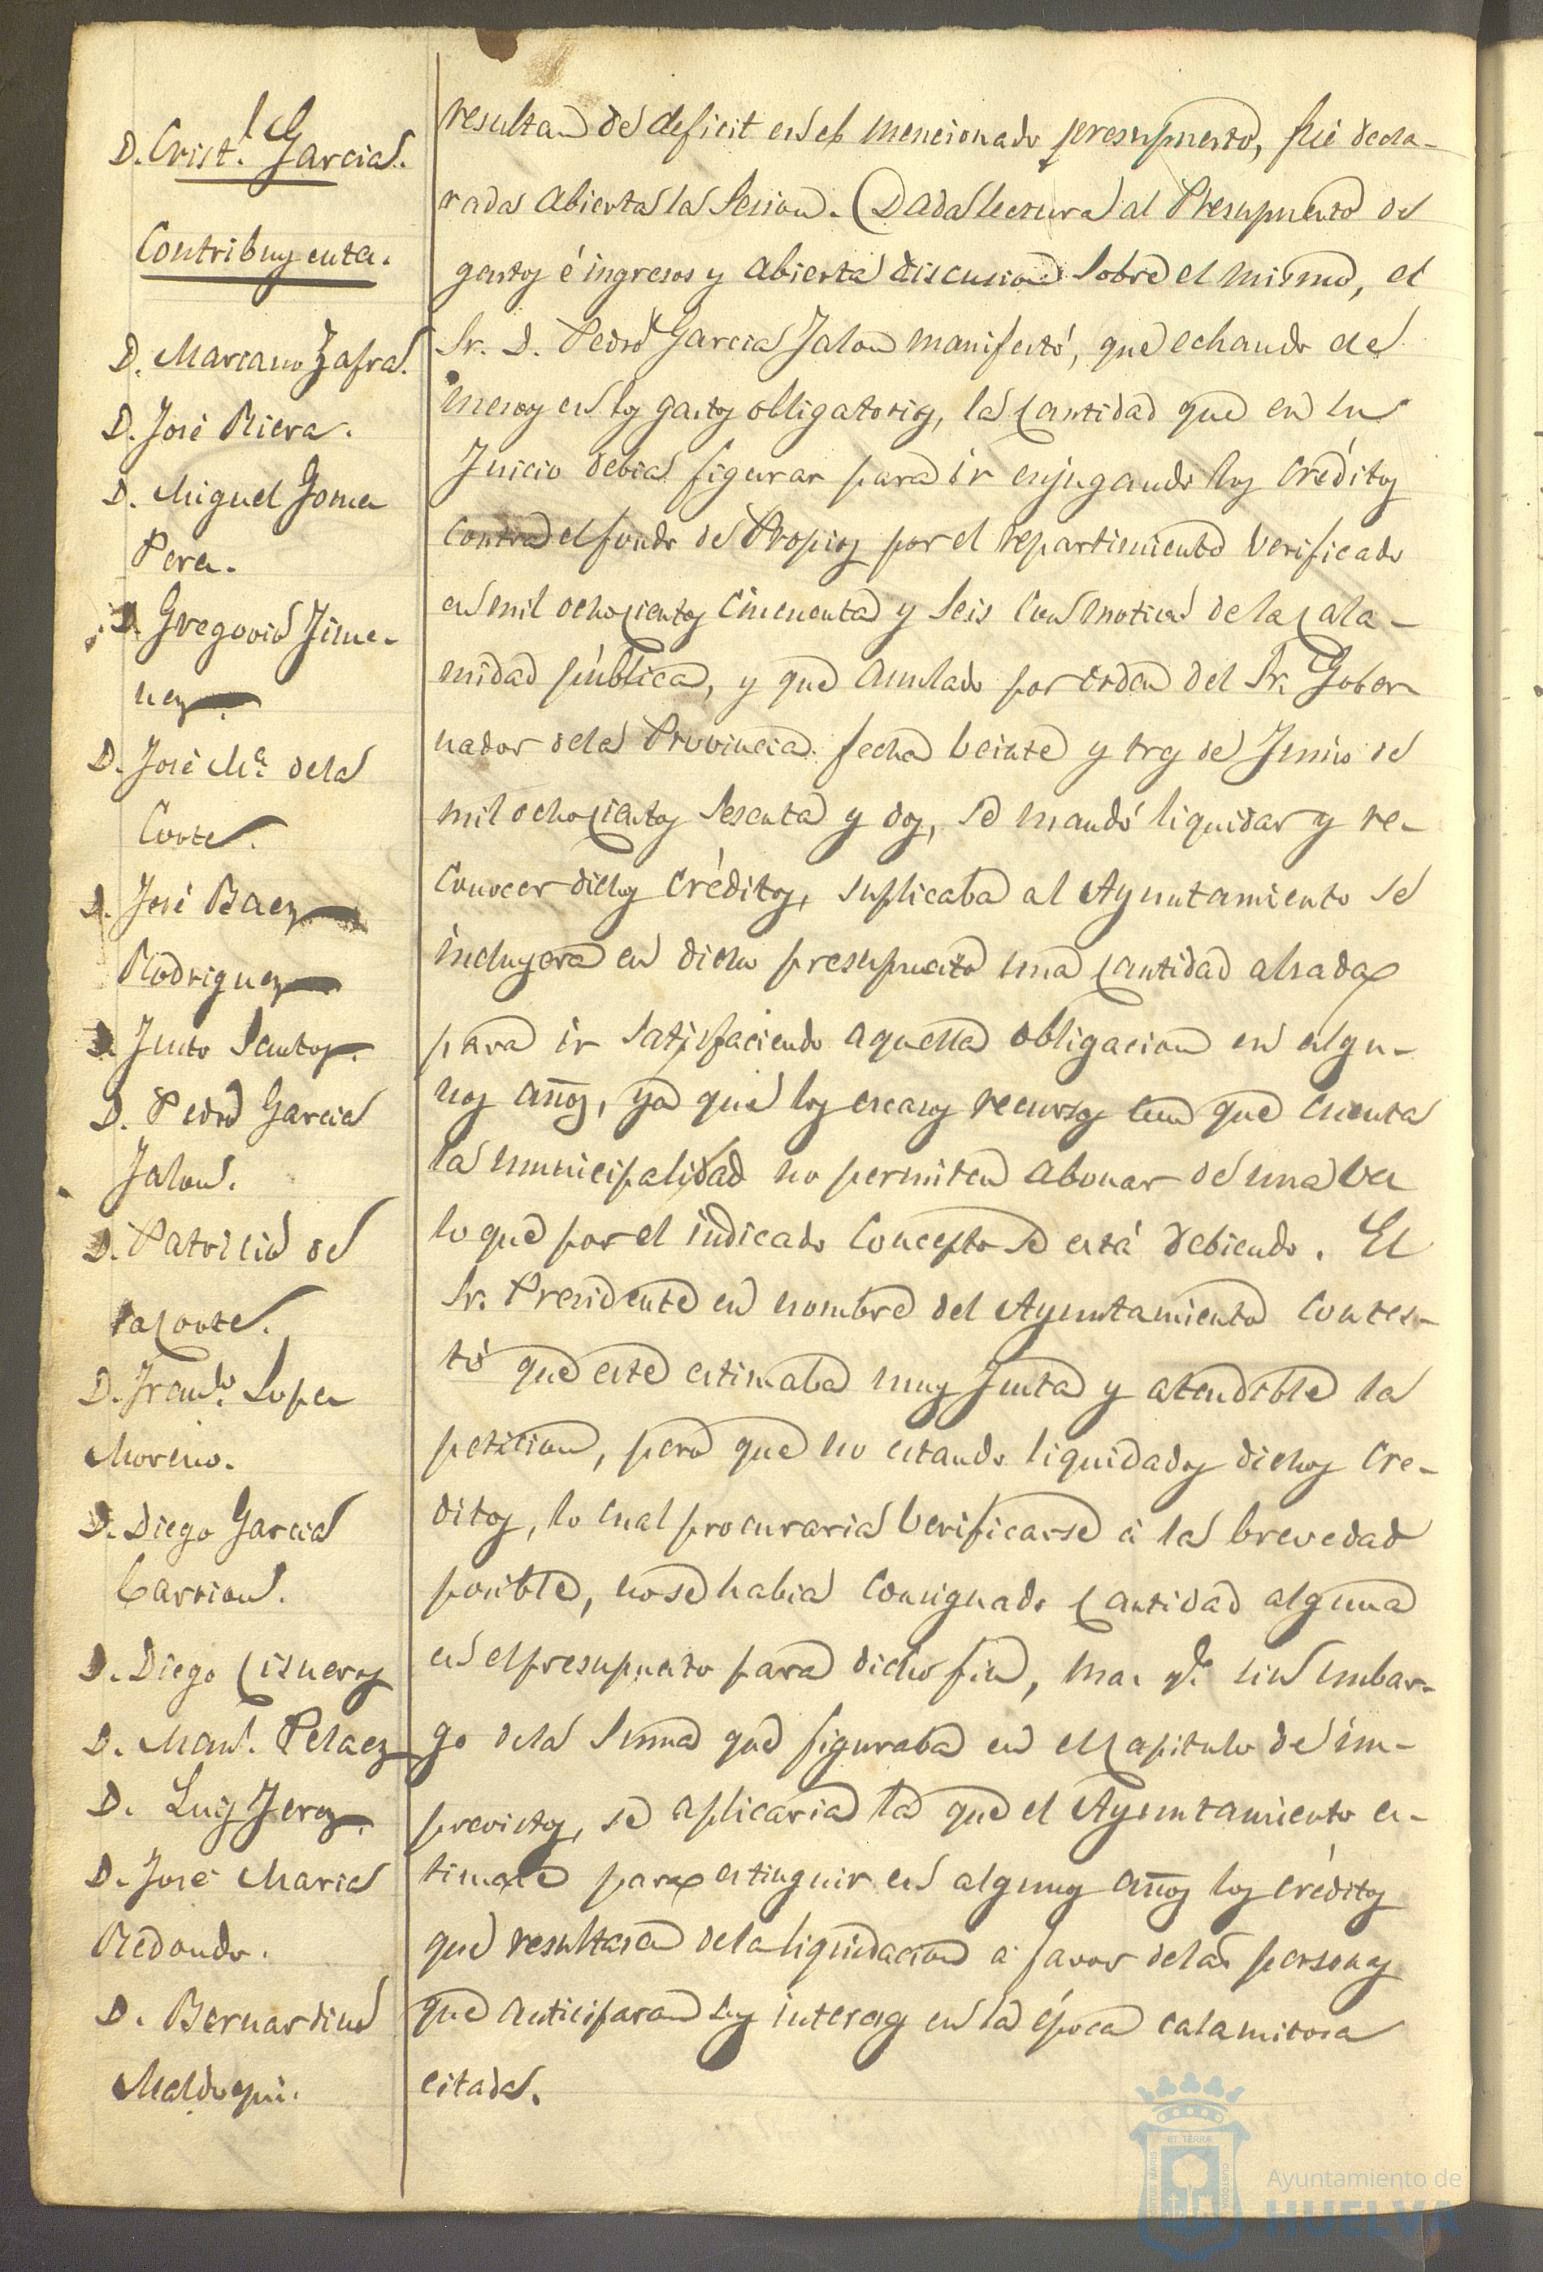 D. Crist.l Garcia.
Contribuyentes.
D. Mariano Zafra.
D. José Riera.
D. Miguel Gomez
Perez.
D. Gregorio Jime-
nez.
D. José M.a de la
Corte.
D. José Baez
Rodriguez
D. Justo Santos.
D. Pedro Garcia
Jalon.
D. Patricio de
la Corte.
D. Fran.co Lopez
Moreno.
D. Diego Garcia
Carrion.
D. Diego Cisneros
D. Man.l Pelaez
D. Luis Jerez.
D. José Maria
Redondo.
D. Bernardino
resultan de deficit en el mencionado presupuesto, fué decla-
rada abierta la Sesion. Dada lectura al Presupuesto de
gastos é ingresos y abierta discusion sobre el mismo, el
Sr. D. Pedro Garcia Jalon manifestó, que echando de
menos en los gastos obligatorios, la cantidad que en su
Juicio debia figurar para ir enjugando los créditos
contra el fondo de Propios por el repartimiento verificado
en mil ochocientos cincuenta y seis con motivo de la cala-
midad pública, y que anulado por orden del Sr. Gober-
nador de la Provincia fecha veinte y tres de Junio de
mil ochocientos sesenta y dos, se mandó liquidar y re-
conocer dichos créditos, suplicaba al Ayuntamiento se
incluyera en dicho presupuesto una cantidad alzada
para ir satisfaciendo aquella obligacion en algu-
nos años, ya que los escasos recursos con que cuenta
la municipalidad no permiten abonar de una vez
lo que por el indicado concepto se está debiendo. El
Sr. Presidente en nombre del Ayuntamiento contes-
tó que este estimaba muy Justa y atendible la
peticion, pero que no estando liquidados dichos cre-
ditos, lo cual procuraria verificarse á la brevedad
posible, no se habia consignado cantidad alguna
en el presupuesto para dicho fin, mas q.e sin embar-
go de la suma que figuraba en el capitulo de im-
previstos, se aplicaria la que el Ayuntamiento es-
timase para estinguir en algunos años los créditos
que resultasen de la liquidacion á favor de las personas
que anticiparon sus intereses en la época calamitosa
citada.
Ayuntamiento de
HUELVA